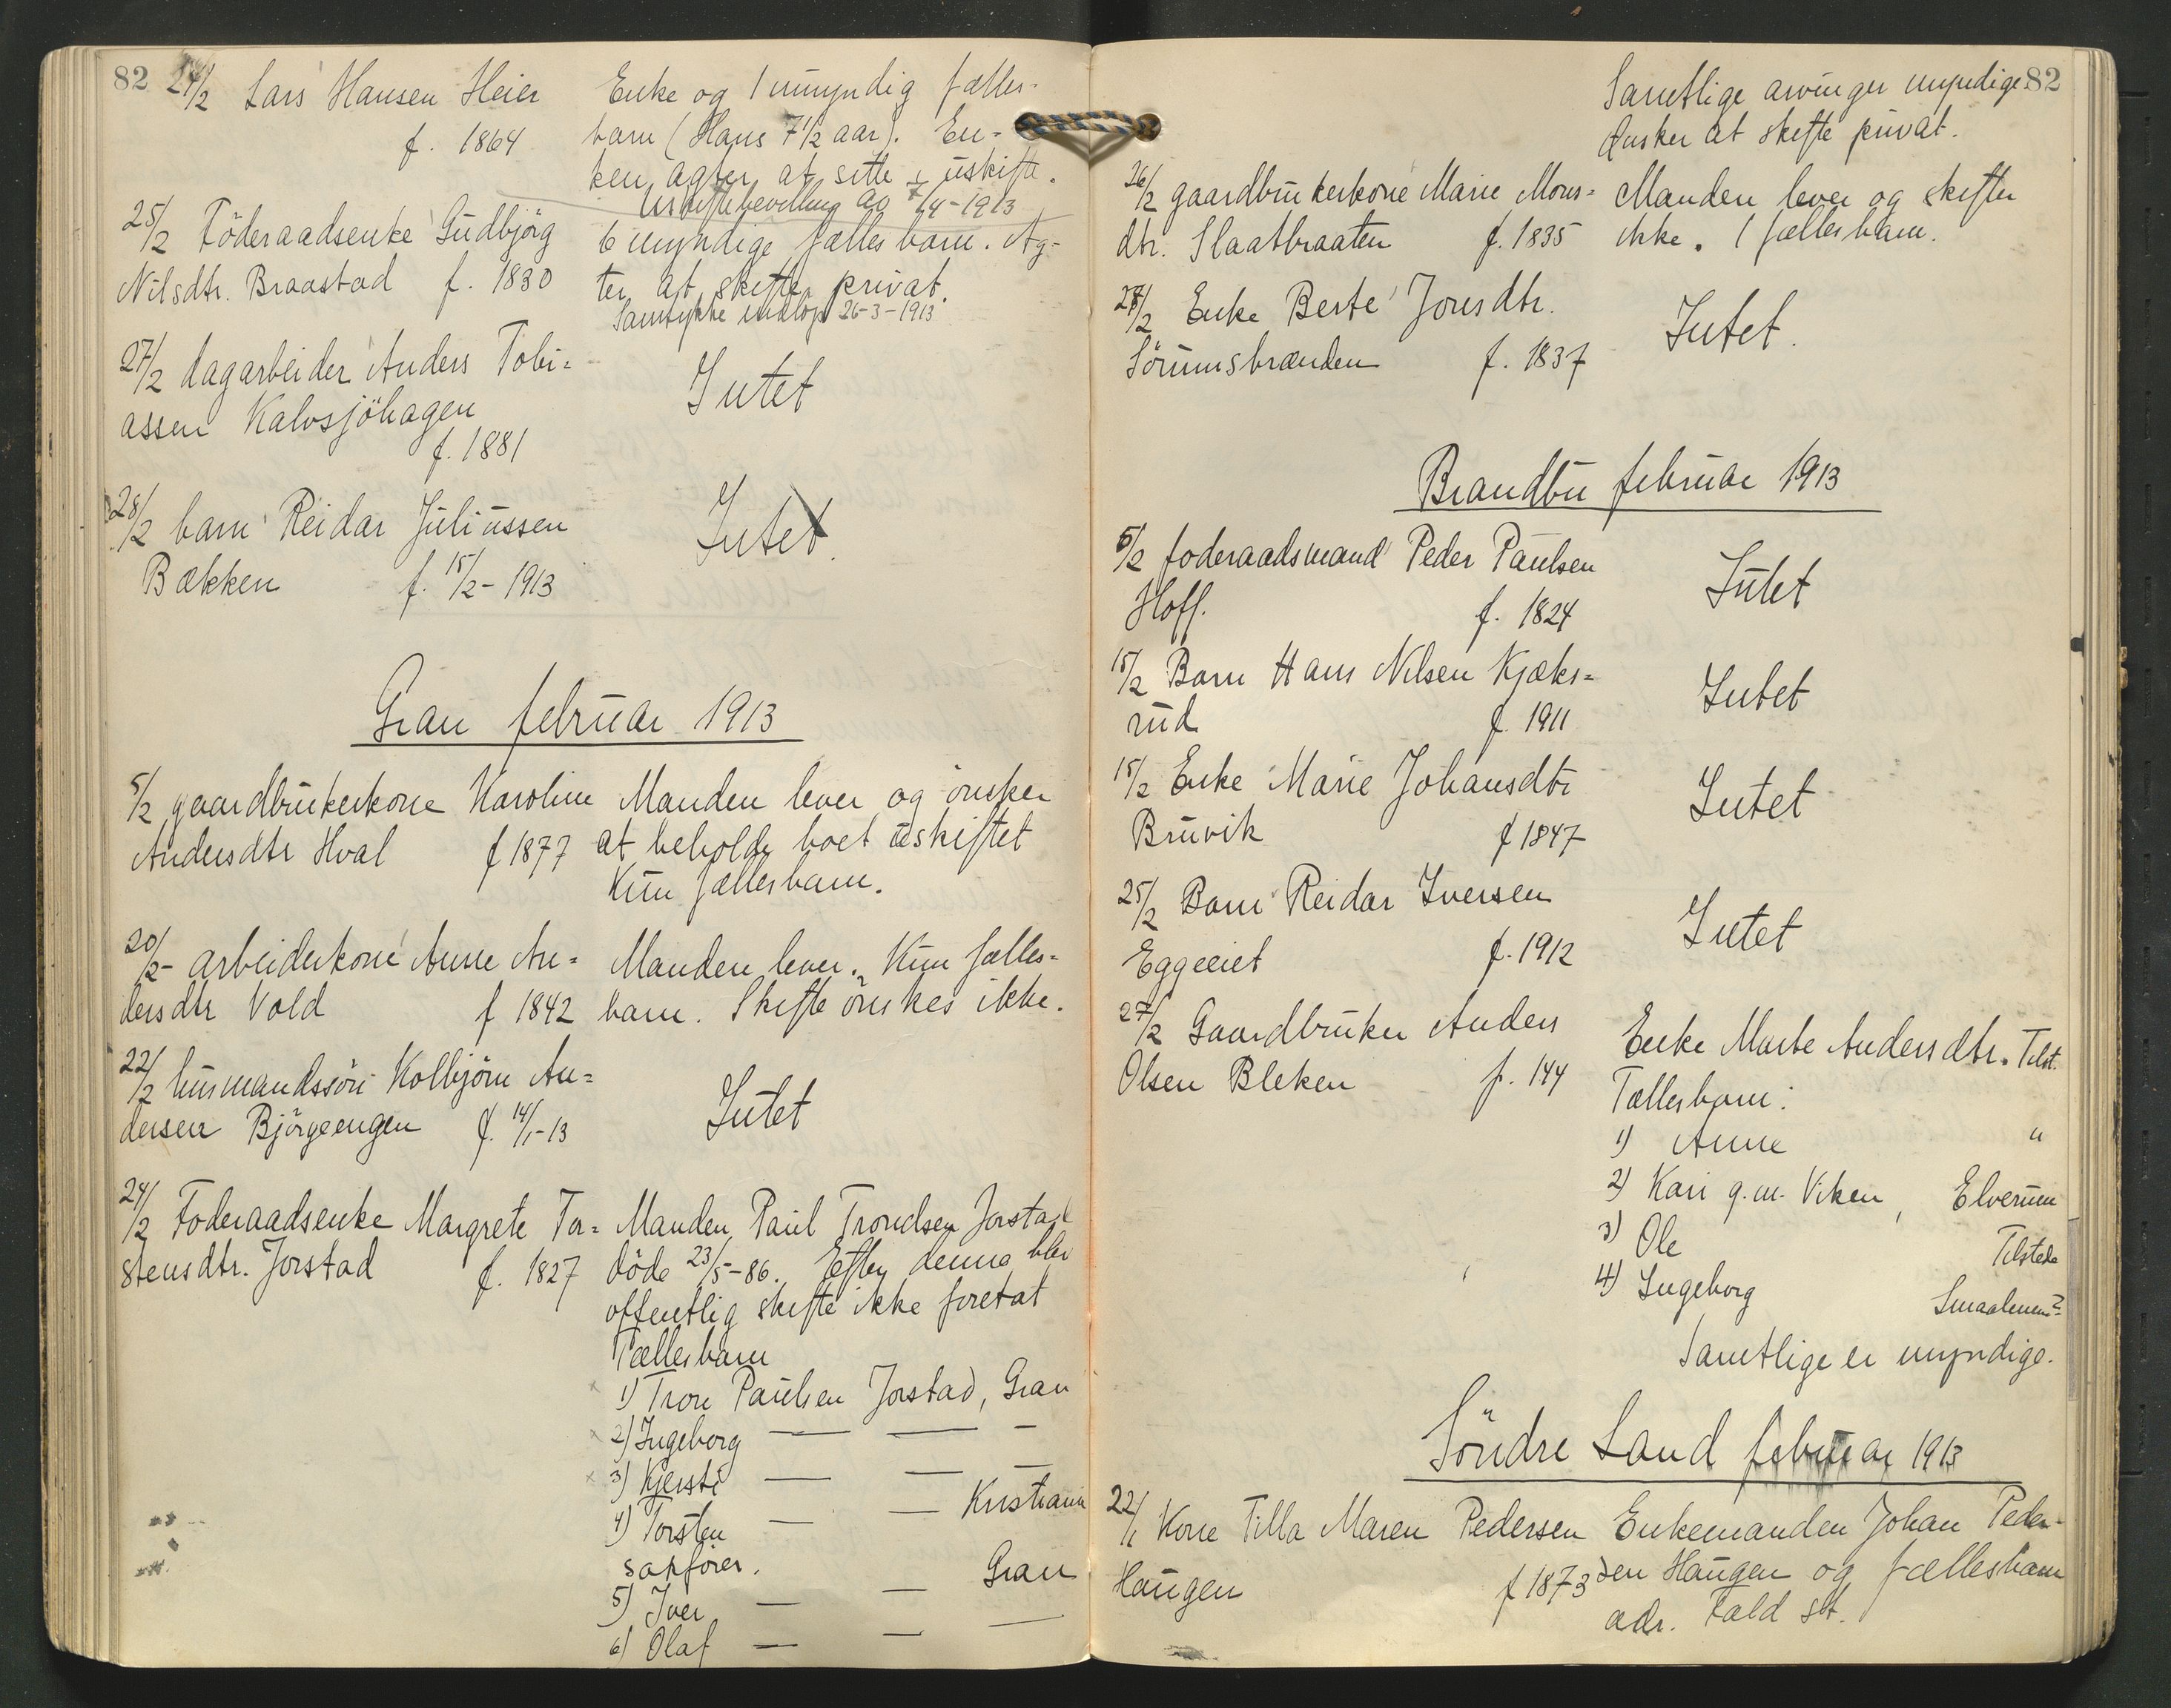 82
24/2 Lars Hansen Heier
f. 1864
Enke og 1 umyndig fælles-
barn (Hans 7 1/2 aar). En-
ken agter at sitte i uskifte.
Uskiftebevilling av 7/4-1913
25/2 Föderaadsenke Gudbjörg
Nilsdtr. Braastad f. 1830
6 myndige fællesbarn. Ag-
ter at skifte privat.
Samtykke indlöp 26-3-1913
27/2 dagarbeider Anders Tobi=
assen Kalvsjöhagen
f. 1881
Intet
28/2 barn Reidar Juliussen
Bækken f. 15/2-1913
Intet.
Gran februar 1913
5/2 gaardbrukerkone Karoline
Andersdtr Hval f 1877
Manden lever og önsker
at beholde boet uskiftet
Kun fællesbarn.
20/2- arbeiderkone Anne An=
dersdtr Vold f 1842
Manden lever. Kun fælles=
barn. Skifte önskes ikke.
22/2 husmandssön Kolbjörn An=
dersen Björgeengen f. 14/1-13
Intet
24/2 Foderaadsenke Margrete Tor=
stensdtr. Jorstad f. 1827
Manden Paul Trondsen Jorstad
döde 23/5-86. Efter denne blev
offentlig skifte ikke foretat
Fællesbarn
1) Tron Paulsen Jorstad, Gran
2) Ingeborg — — —
3) Kjersti — — —
4) Torsten — — Kristiania
sakförer.
5) Iver — — Gran
6) Olaf — — —
82
Samtlige arvinger myndige
Önsker at skifte privat.
26/2 gaardbrukerkone Marie Mons=
dtr. Slaatbraaten f. 1835
Manden lever og skifter
ikke. 1 fællesbarn.
28/2 Enke Berte Jonsdtr.
Sörumsbrænden f. 1837
Intet.
Brandbu februar 1913
5/2 foderaadsmand Peder Paulsen
Hoff. f. 1824
Intet
15/2 Barn Hans Nilsen Kjæks=
rud f. 1911
Intet
15/2 Enke Marie Johansdtr
Bruvik f 1847
Intet
25/2 Barn Reidar Iversen
Eggeeiet f. 1912
Intet
27/2 Gaardbruker Anders
Olsen Bleken f. 144
Enke Marte Andersdtr. Tilst.
Fællesbarn:
1) Anne "
2) Kari g.m. Viken, Elverum
3) Ole Tilstede
4) Ingeborg Smaalenene?
Samtlige er myndige.
Söndre Land februar 1913
22/1 Kone Tilla Maren Pedersen
Haugen f 1873
Enkemanden Johan Peder-
sen Haugen og fællesbarn
adr. Fald st.